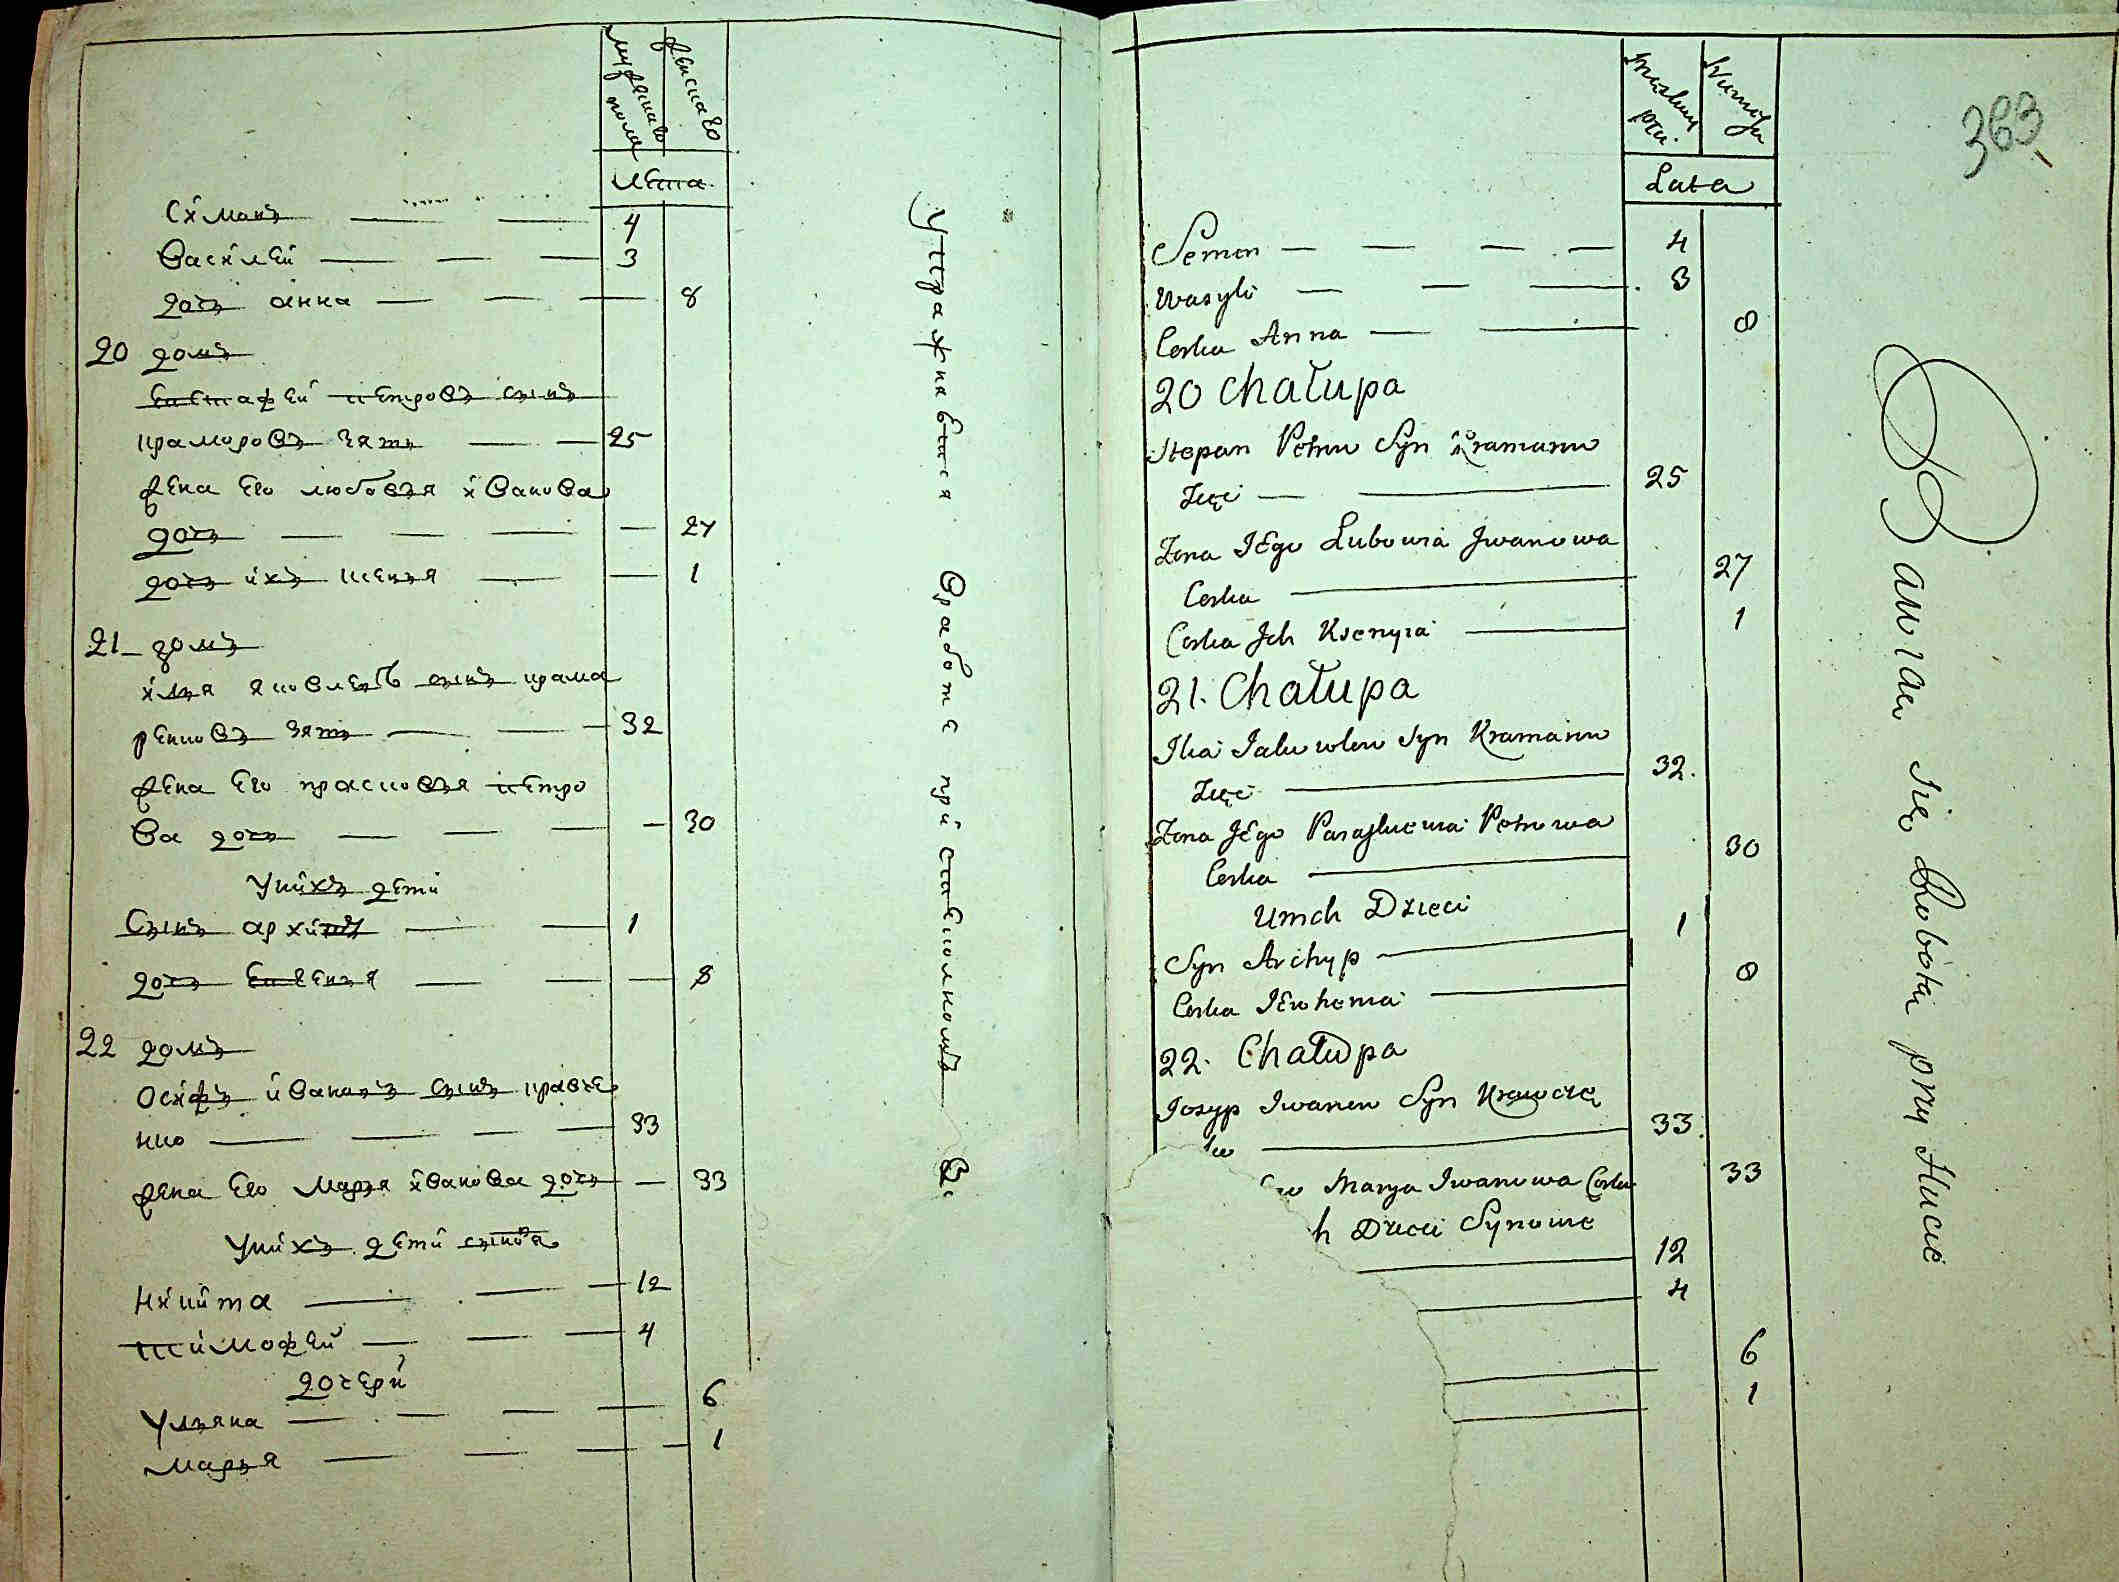 мужеска
пола
женска го
лета
Симонъ 4
Василей 3
дочь анна 8
20 домъ
Евстафей петровъ сынъ
крамаровъ зять 25
жена его любовья иванова
дочь 27
дочь ихъ ксенья 1
21 домъ
илья яковлевъ сынъ крама
ренковъ зять 32
жена его прасковья петро
ва дочь 30
у нихъ дети
Сынъ архипъ 1
дочь Евгенья 8
22 домъ
Осифъ ивановъ сынъ кравче
нко 33
жена его марья иванова дочь 33
у нихъ дети сыновя
никита 12
тимофей 4
дочери
ульяна 6
марья 1
упражняється в работе при
363
Męzkiey
płci
Lata
Semen 4
Wasyli 3
Corka Anna 8
20 Chałupa
Stepan Petrow Syn Kramarow
Zięć 25
Zona JEgo Lubowia Jwanowa
Corka 27
Corka Jch Ksenyia 1
21. Chałupa
Ilia Iakowlew Syn Kramarow
Zięć 32.
Zona JEgo Paraskiewia Petrowa
Corka 30
U nich Dzieci
Syn Archyp 1
Corka IEwhenia 8
22. Chałupa
Iosyp Iwanow Syn Krawczę
ko 33.
Marya Iwanowa Corka 33
h Dzieci Synowie
12
4
6
1
Bawiau się Robotą przy Hucie